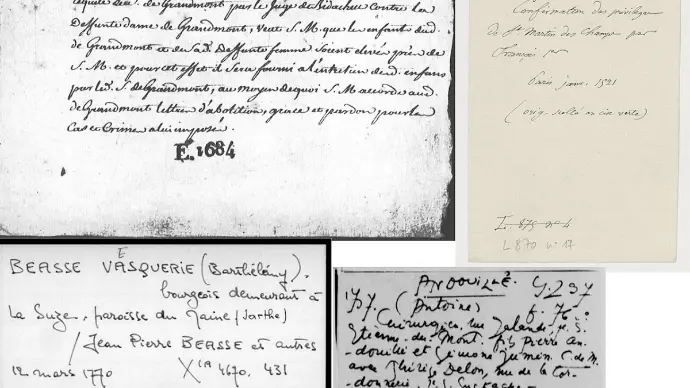 requete des. de Grandmont par le Juge de Bidache contre la
Deffunte dame de Grandmont, veut S. M. que les enfants dud.
de Grandmont et de sad. Deffunte femme soient élevés près de
S. M. et pour cet effet il sera fourni a l'entretien desd. enfans
par led. S. de Grandmont, au moyen de quoi S. M. accorde aud.
de Grandmont lettres d'abolition, grace et pardon pour le
Cas et Crime a lui imposé.
E. 1684
Confirmation des privilèges
de St Martin des Champs par
François Ier
Paris janv. 1521
(orig. scellé en cire verte)
L. 879 no 4
L 870 n. 17
BEASSE VEASQUERIE (Barthélémy).
bourgeois demeurant à
La Suze, paroisse du Maine (Sarthe)
/ Jean Pierre BEASSE et autres
12 mars 1770 X 1A 4670, 431
ANDOUILLÉ. Y. 297
1757. (Antoine) f. 76 vo
Chirurgien, rue Galande, p. S.
Etienne-du-Mont, fils Pierre An-
-douillé et Simone Jumin. C. de M.
avec Thérèse Delon, rue de la Cor-
-donnerie, p. S. Eustache-